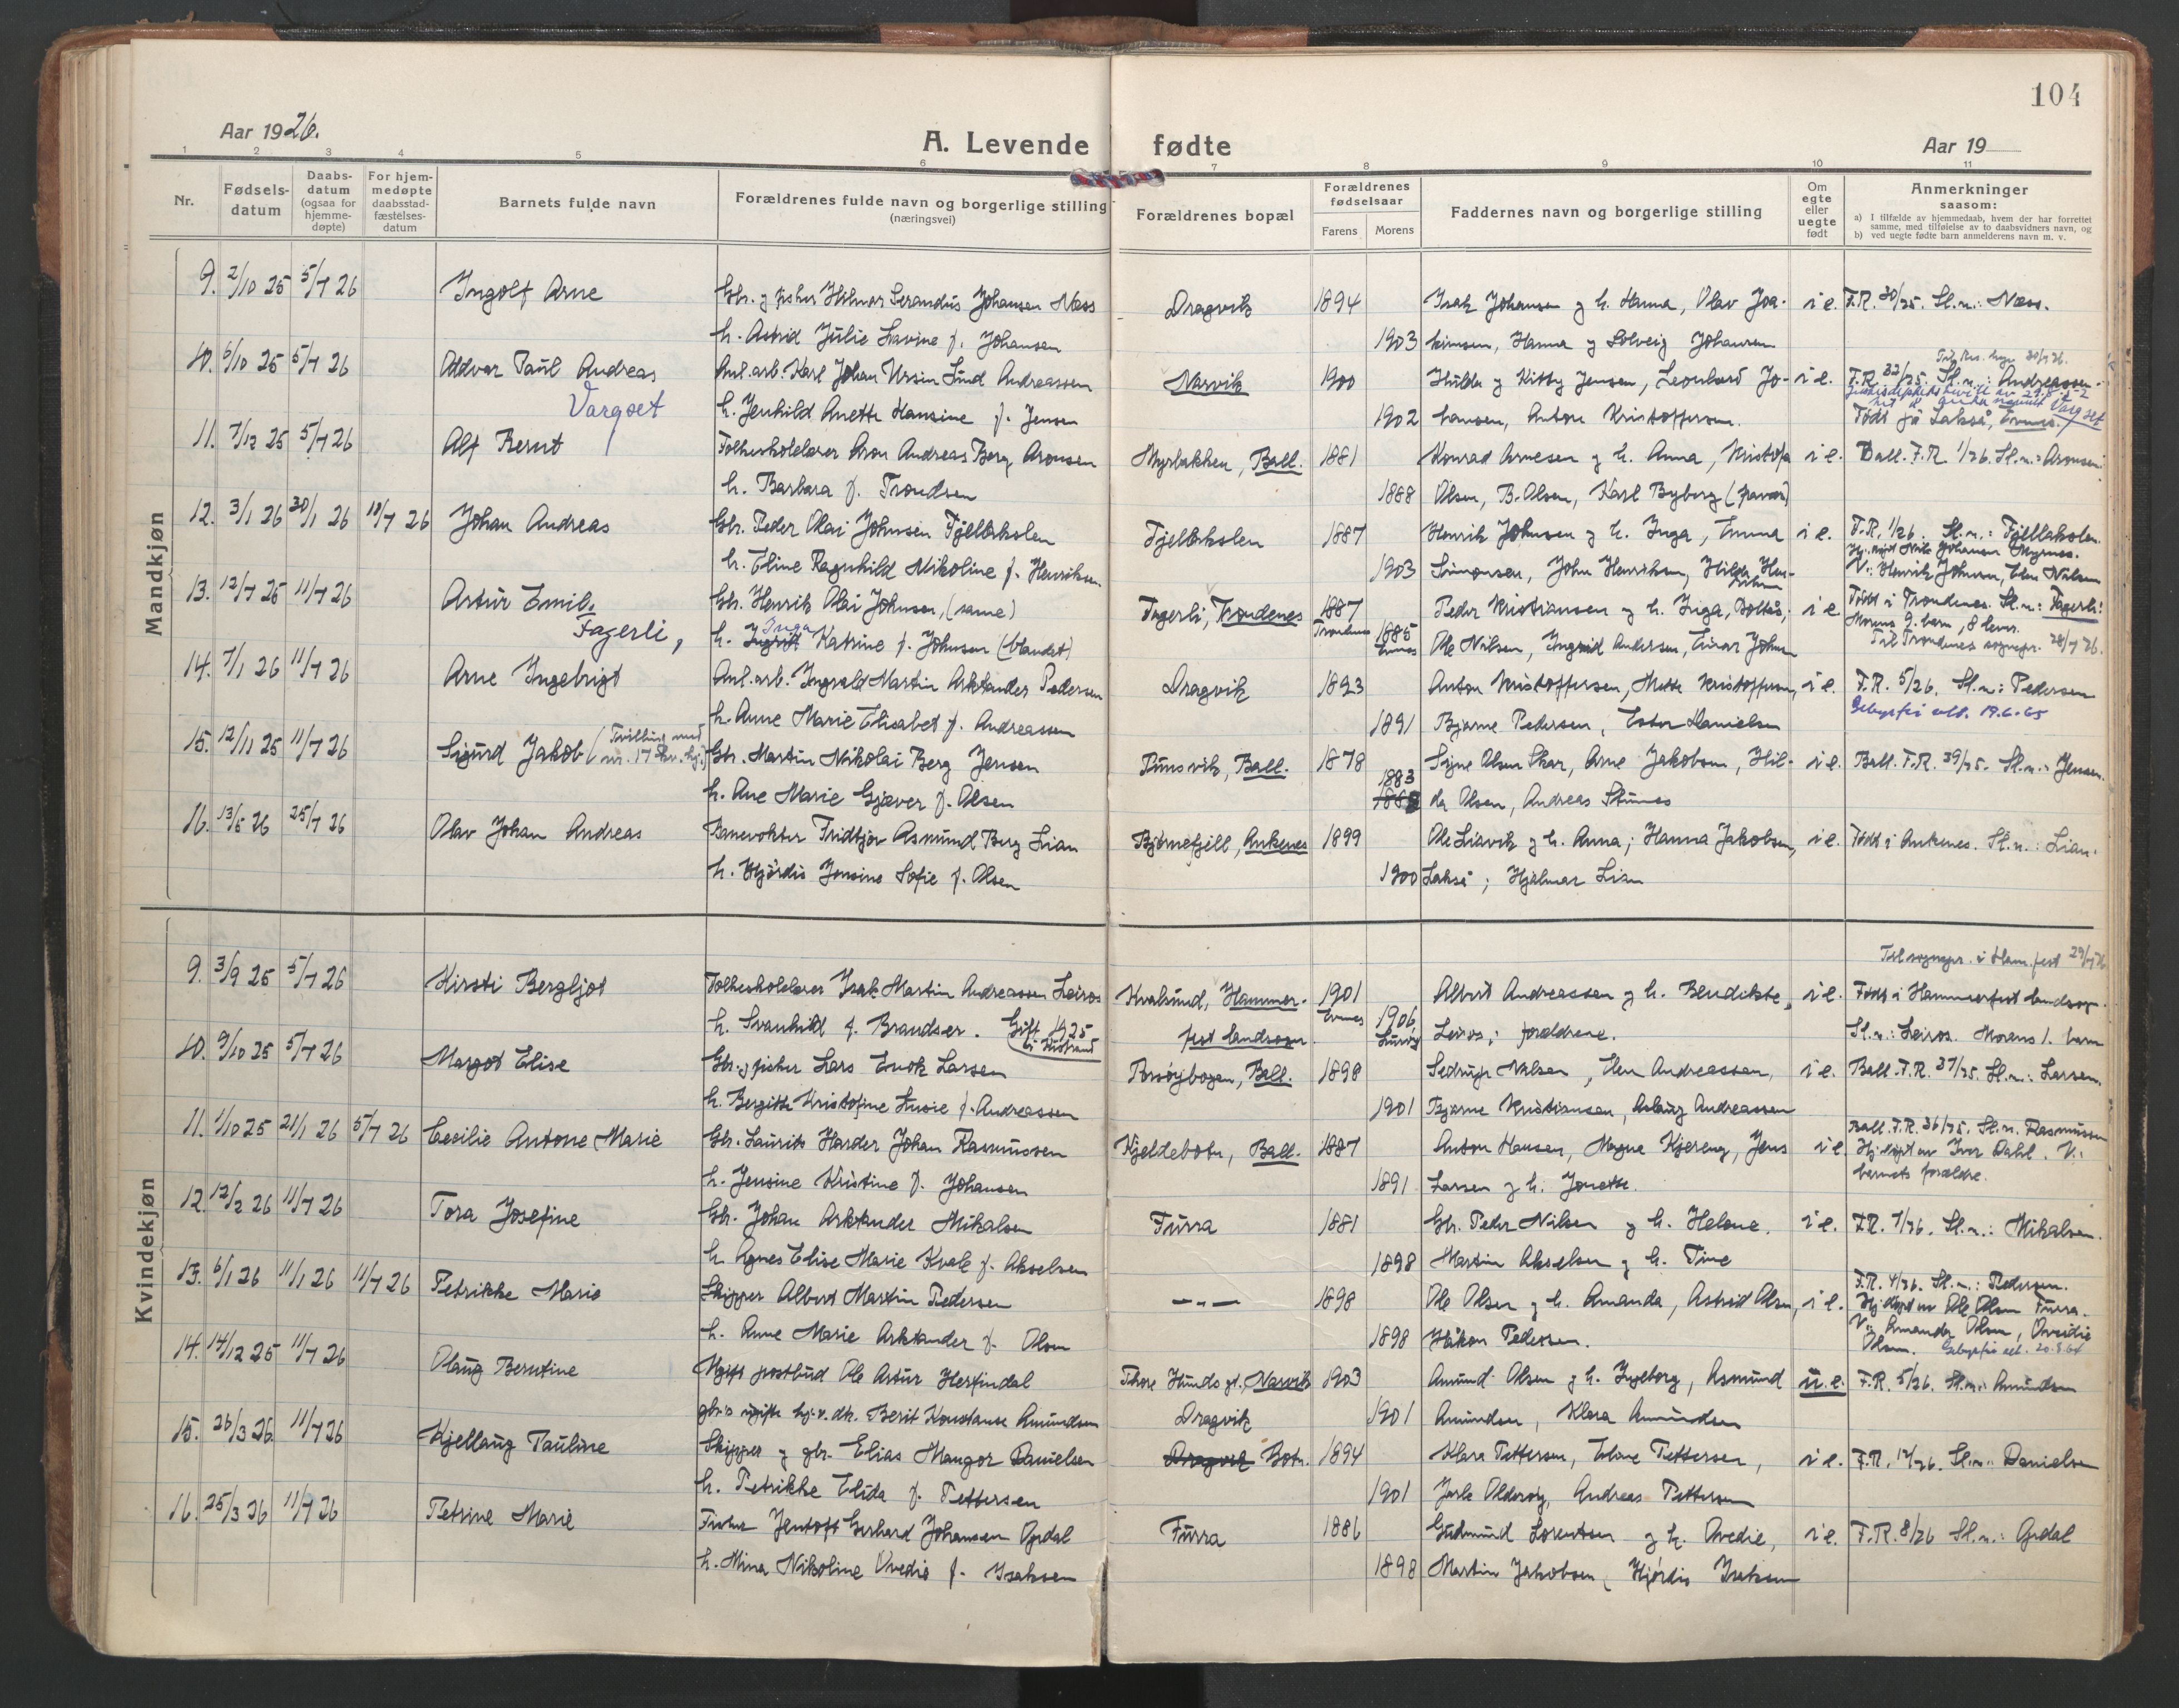 104
Aar 1926.
A. Levende fødte
Aar 19
1 2 3 4 5 6 7 8 9 10 11
Nr.
Fødsels-
datum
Daabs-
datum
(ogsaa for
hjemme-
døpte)
For hjem-
medøpte
daabsstad-
fæstelses-
datum
Barnets fulde navn
Forældrenes fulde navn og borgerlige stilling
(næringsvei)
Forældrenes bopæl
Forældrenes
fødselsaar
Farens Morens
Faddernes navn og borgerlige stilling
Om
egte
eller
uegte
født
Anmerkninger
saasom:
a) I tilfælde av hjemmedaab, hvem der har forrettet
samme, med tilføielse av to daabsvidners navn, og
b) ved uegte fødte barn anmelderens navn m. v.
Mandkjøn
9. 2/10 25 5/4 26 Ingolf Arne Gbr. g fisker Hilmar Serandius Johansen Næss Dragvik 1894 Isak Johansen g h. Hanna, Olav Joa- i e. F.R. 30/25. Sl.n.: Næss.
h. Astrid Julie Lavine f. Johansen 1903 kimsen, Hanna g Solveig Johansen
10. 6/10 25 5/4 26 Oddvar Paul Andreas Anl.arb. Karl Johan Ursin Lund Andreassen Narvik 1900 Hulda g Kitty Jensen, Leonhard Jo- i e. F.R. 32/25. Sl.n.: Andreassen
Vargset h. Jenhild Anette Hansine f. Jensen 1902 hansen, Anton Kristoffersen. Født på Lakså, Evenes. Vargset
11. 7/12 25 5/4 26 Alf Bernt Folkeskolelærer Aron Andreas Berg Aronsen Myrbakken, Ball. 1881 Konrad Arnesen g h. Anna, Kristofa i e. Ball. F.R. 1/26. Sl.n.: Aronsen
h. Barbara f. Trondsen 1888 Olsen, B. Olsen, Karl Byberg
12. 3/1 26 30/1 26 18/4 26 Johan Andreas Gbr. Peder Olai Johnsen Fjellakslen Fjellakslen 1887 Henrik Johnsen g h. Inga, Emma i e. F.R. 1/26. Sl.n.: Fjellakslen.
h. Eline Ragnhild Nikoline f. Henriksen 1903 Simonsen, John Henriksen, Hilda V.: Henrik Johnsen, Elen Nilsen
13. 12/4 25 11/4 26 Artur Emil, Gbr. Henrik Olai Johnsen, (same) Fagerli, Trondenes 1887 Peder Kristiansen g h. Inga, Boltås; i e. Født i Trondenes. Sl.n.: Fagerli.
Fagerli, h. Inga Katrine f. Johnsen (blandet) 1885 Ole Nilsen, Ingrid Andersen, Einar Johnsen Morens 9. barn, 8 lever.
Til Trondenes sognepr. 28/4 26.
14. 7/1 26 11/4 26 Arne Ingebrigt Anl.arb. Ingvald Martin Arktander Pedersen Dragvik 1893 Anton Kristoffersen, Mette Kristoffersen, i e. F.R. 5/26. Sl.n.: Pedersen
h. Anne Marie Elisabet f. Andreassen 1891 Bjarne Pedersen, Ester Danielsen Gebyrfri att. 19.6.65
15. 12/11 25 11/4 26 Sigurd Jakob (Tvilling med nr. 17 kv.kj.) Gbr. Martin Nikolai Berg Jensen Tunsvik, Ball. 1878 Signe Olsen Skar, Arne Jakobsen, Hil- i e. Ball. F.R. 39/25. Sl.n.: Jensen.
h. Ane Marie Gjæver f. Olsen 1883 da Olsen, Andreas
16. 13/5 26 25/4 26 Olav Johan Andreas Banevokter Fridtjov Asmund Berg Lian Bjørnefjell, Ankenes 1899 Ole Liavik g h. Anna; Hanna Jakobsen, i e. Født i Ankenes. Sl.n.: Lian.
h. Hjørdis Jensine Sofie f. Olsen 1900 Lakså; Hjalmar Lian
Kvindekjøn
Til sognepr. i Hammerfest 29/4 26
9. 3/9 25 5/4 26 Kirsti Bergljot Folkeskolelærer Isak Martin Andreassen Leiros Kvalsund, Hammer- 1901 Albert Andreassen g h. Bendikte, i e. Født i Hammerfest landsogn.
h. Svanhild f. Brandser. Gift 1925 fest landsogn. 1906 Leiros; foreldrene. Sl.n.: Leiros. Morens 1. barn
10. 9/10 25 5/4 26 Margot Elise Gbr. g fisker Lars Enok Larsen Forsøybogen, Ball. 1898 Sedrup Nilsen, Elen Andreassen, i e. Ball. F.R. 37/25. Sl.n.: Larsen.
h. Bergitte Kristofine Lusie f. Andreassen 1901 Bjarne Kristiansen, Aslaug Andreassen
11. 1/10 25 21/1 26 5/4 26 Cecilie Antone Marie Gbr. Laurits Harder Johan Rasmussen Kjeldebotn, Ball. 1887 Anton Hansen, Magne Kjereng, Jens i e. Ball. F.R. 36/25. Sl.n. Rasmussen
h. Jensine Kristine f. Johansen 1891 Larsen g h. Jonette. Hj.døpt av Iver Dahl. V.: barnets forældre.
12. 12/2 26 11/4 26 Tora Josefine Gbr. Johan Arktander Mikalsen Furra 1881 Gbr. Peder Nilsen g h. Helene. i e. F.R. 7/26. Sl.n.: Mikalsen.
h. Agnes Elise Marie Kvale f. Akselsen 1898 Martin Akselsen g h. Tine
13. 6/1 26 11/1 26 11/4 26 Petrikke Marie Skipper Albert Martin Pedersen — " — 1898 Ole Olsen g h. Amanda, Astrid Olsen, i e. F.R. 4/26. Sl.n.: Pedersen.
h. Anne Marie Arktander f. Olsen 1898 Håkon Pedersen. Hj.døpt av Ole Olsen Furra. V.: Amanda Olsen, Ovidie Olsen. Gebyrfri att. 20.8.64
14. 14/12 25 11/4 26 Olaug Berntine Ugift postbud Ole Artur Herfindal Thore Hunds gt., Narvik 1903 Amund Olsen g h. Ingeborg, Asmund u.e. F.R. 5/26. Sl.n.: Amundsen
gbr.s ugifte hj.v. dtr. Berit Konstanse Amundsen Dragvik 1901 Amundsen, Klara Amundsen
15. 26/3 26. 11/4 26 Kjellaug Pauline Skipper g gbr. Elias Mangor Danielsen Dragvik Botn. 1894 Klara Pettersen, Edane Pettersen, i e. F.R. 12/26. Sl.n.: Danielsen
h. Petrikke Elida f. Pettersen 1901 Jarle Oldervig, Andreas Pettersen
16. 25/3 26 11/4 26 Petrine Marie Fisker Jentoft Gerhard Johansen Opdal Furra 1886 Gudmund Lorentsen g h. Ovedie, i e. F.R. 8/26 Sl.n.: Opdal
h. Mina Nikoline Ovedie f. Isaksen 1898 Martin Jakobsen, Hjørdis Isaksen